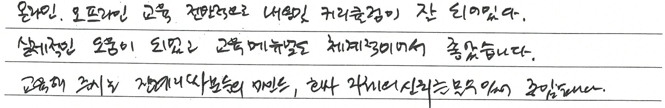 온라인. 오프라인 교육 전반적으로 내용및 커리큘럼이 잘 되어있다.
실제적인 도움이 되었고 교육메뉴얼도 체계적이어서 좋았습니다.
교육해 주시는 마인드, 회사 자체의 신뢰 있어 좋았습니다.